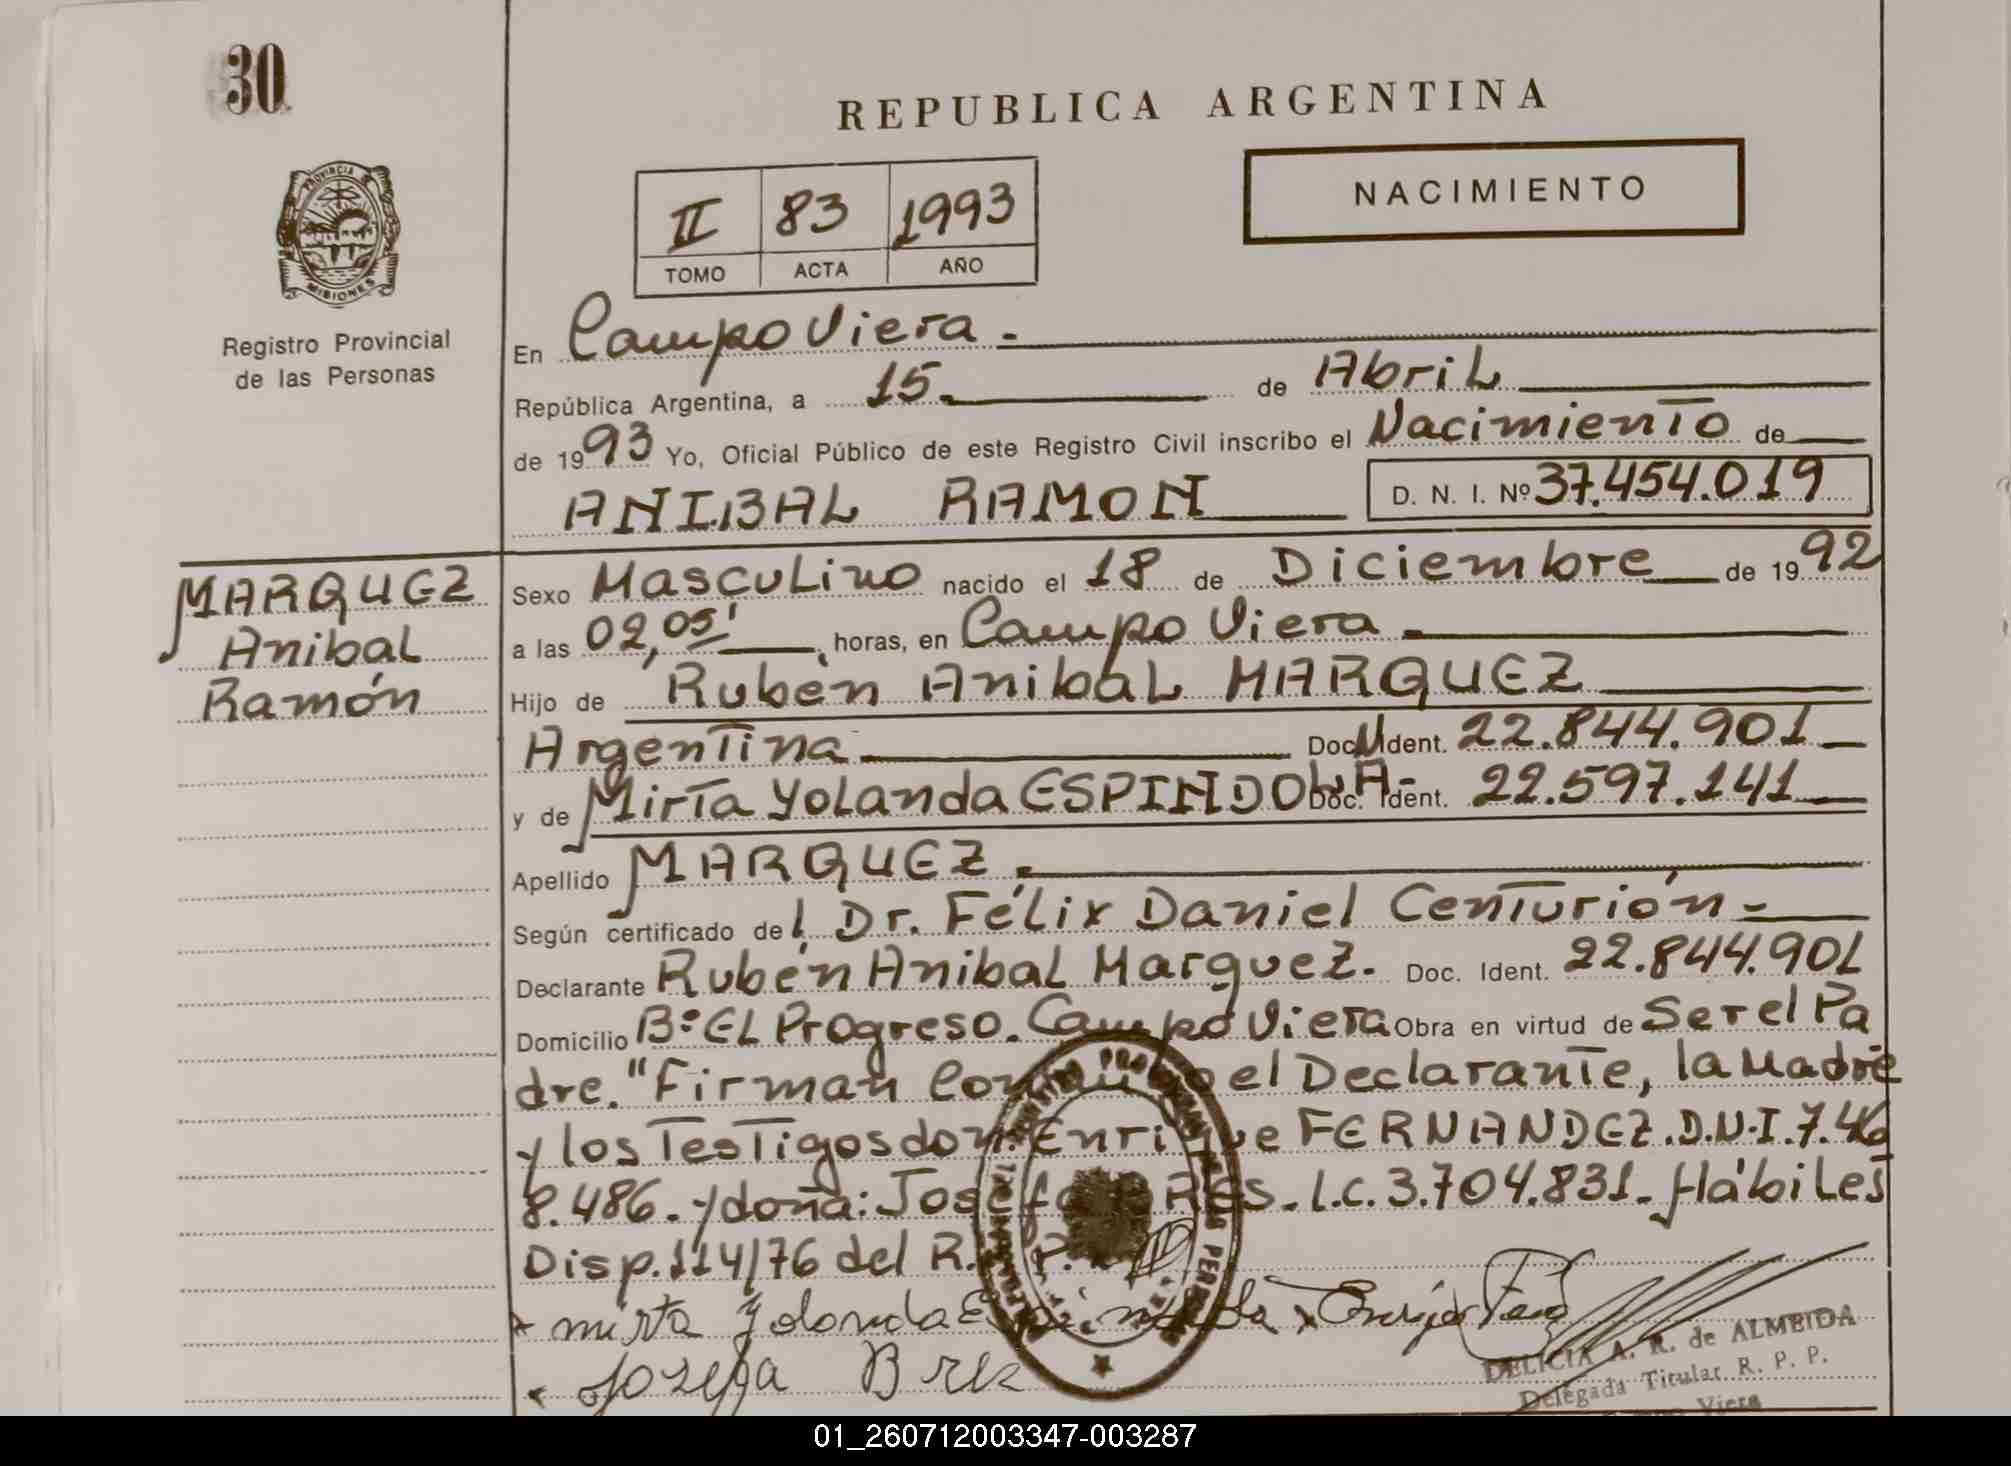 30
REPUBLICA ARGENTINA
NACIMIENTO
II 83 1993
TOMO ACTA AÑO
PROVINCIA DE
MISIONES
Registro Provincial
de las Personas
En Campo Viera.
República Argentina, a 15. de Abril
de 1993 Yo, Oficial Público de este Registro Civil inscribo el Nacimiento de
ANIBAL RAMON D. N. I. Nº 37.454.019
MARQUEZ
Anibal
Ramón
Sexo Masculino nacido el 18 de Diciembre de 1992
a las 02,05' horas, en Campo Viera.
Hijo de Rubén Anibal MARQUEZ
Argentina Doc. Ident. 22.844.901
y de Mirta Yolanda ESPINDOLA- Doc. Ident. 22.597.141
Apellido MARQUEZ.
Según certificado del Dr. Félix Daniel Centurión-
Declarante Rubén Anibal Marquez. Doc. Ident. 22.844.901
Domicilio Bº EL Progreso. Campo Viera Obra en virtud de Ser el Pa
dre." Firman Conmigo el Declarante, la Madre
y los Testigos don: Enrique FERNANDEZ. D.N.I. 7.46
8.486. y doña: Josefa L.C. 3.704.831. Hábiles
Disp. 114/76 del R. P.
mirta Yolanda Espindola
Josefa
DELICIA A. R. de ALMEIDA
Delegada Titular R. P. P.
Viera
01_260712003347-003287